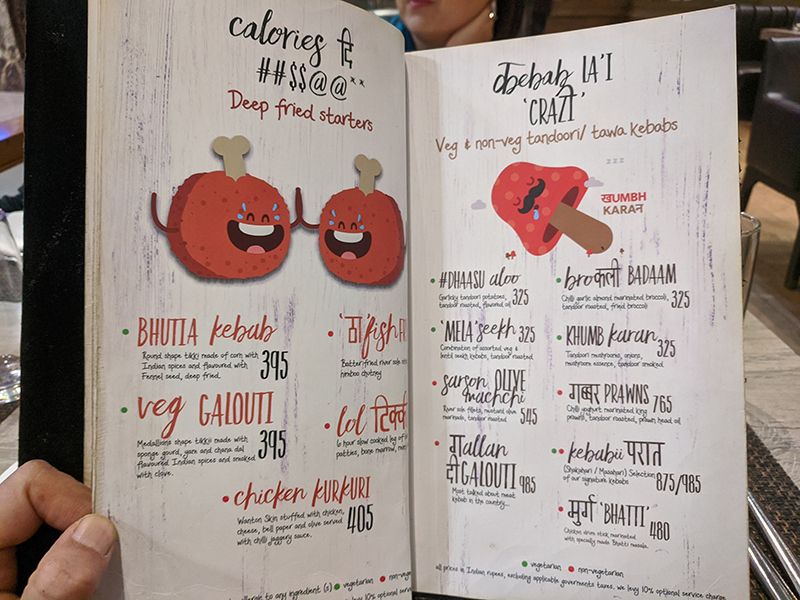 calories दि
##$$@@**
Deep fried starters
BHUTTA kebab
Round shape tikki made of corn with
Indian spices and flavoured with
Fennel seed, deep fried.
395
veg GALOUTI
Medallions shape tikkii made with
sponge gourd, yam and chana dal
flavoured Indian spices and smoked
with clove.
395
chicken KURKURI
Wanton Skin stuffed with chicken,
cheese, bell paper and olive served
with chilli jaggery sauce.
405
'ठा'fish
Batter fried river sole
nimboo chutney
lol टिक्क
6 hour slow cooked leg of
patties, bone marrow,
to any ingredient (s) vegetarian non-veg
levy 10% optional service
कebab LA'I
'CRAZY'
Veg & non-veg tandoori/ tawa kebabs
zzz
खUMBH
KARAन
#DHAASU aloo
Garlicky tandoori potatoes,
tandoor roasted, flavored oil
325
'MELA' seekh 325
Combination of assorted veg &
lentil seekh kebabs, tandoor roasted.
sarson OLIVE
machchi
River sole fillets, mustard olive
marinade, tandoor roasted
545
गallan
दी GALOUTI
Most talked about meat
kebab in the country...
985
broकली BADAAM
Chilli garlic almond marinated broccoli,
tandoor roasted, fried broccoli
325
KHUMB karan
Tandoori mushrooms, onions,
mushroom essence, tandoor smoked
325
गब्बर PRAWNS
Chilli yoghurt marinated king
prawns, tandoor roasted, prawn head oil
765
kebabii परात
(Shakahari / Masahari) Selection
of our signature kebabs
875/985
मुर्ग 'BHATTI'
Chicken drum stick marinated
with specially made Bhatti masala.
480
vegetarian non-vegetarian
all prices in Indian rupees, excluding applicable goverments taxes. we levy 10% optional service charge